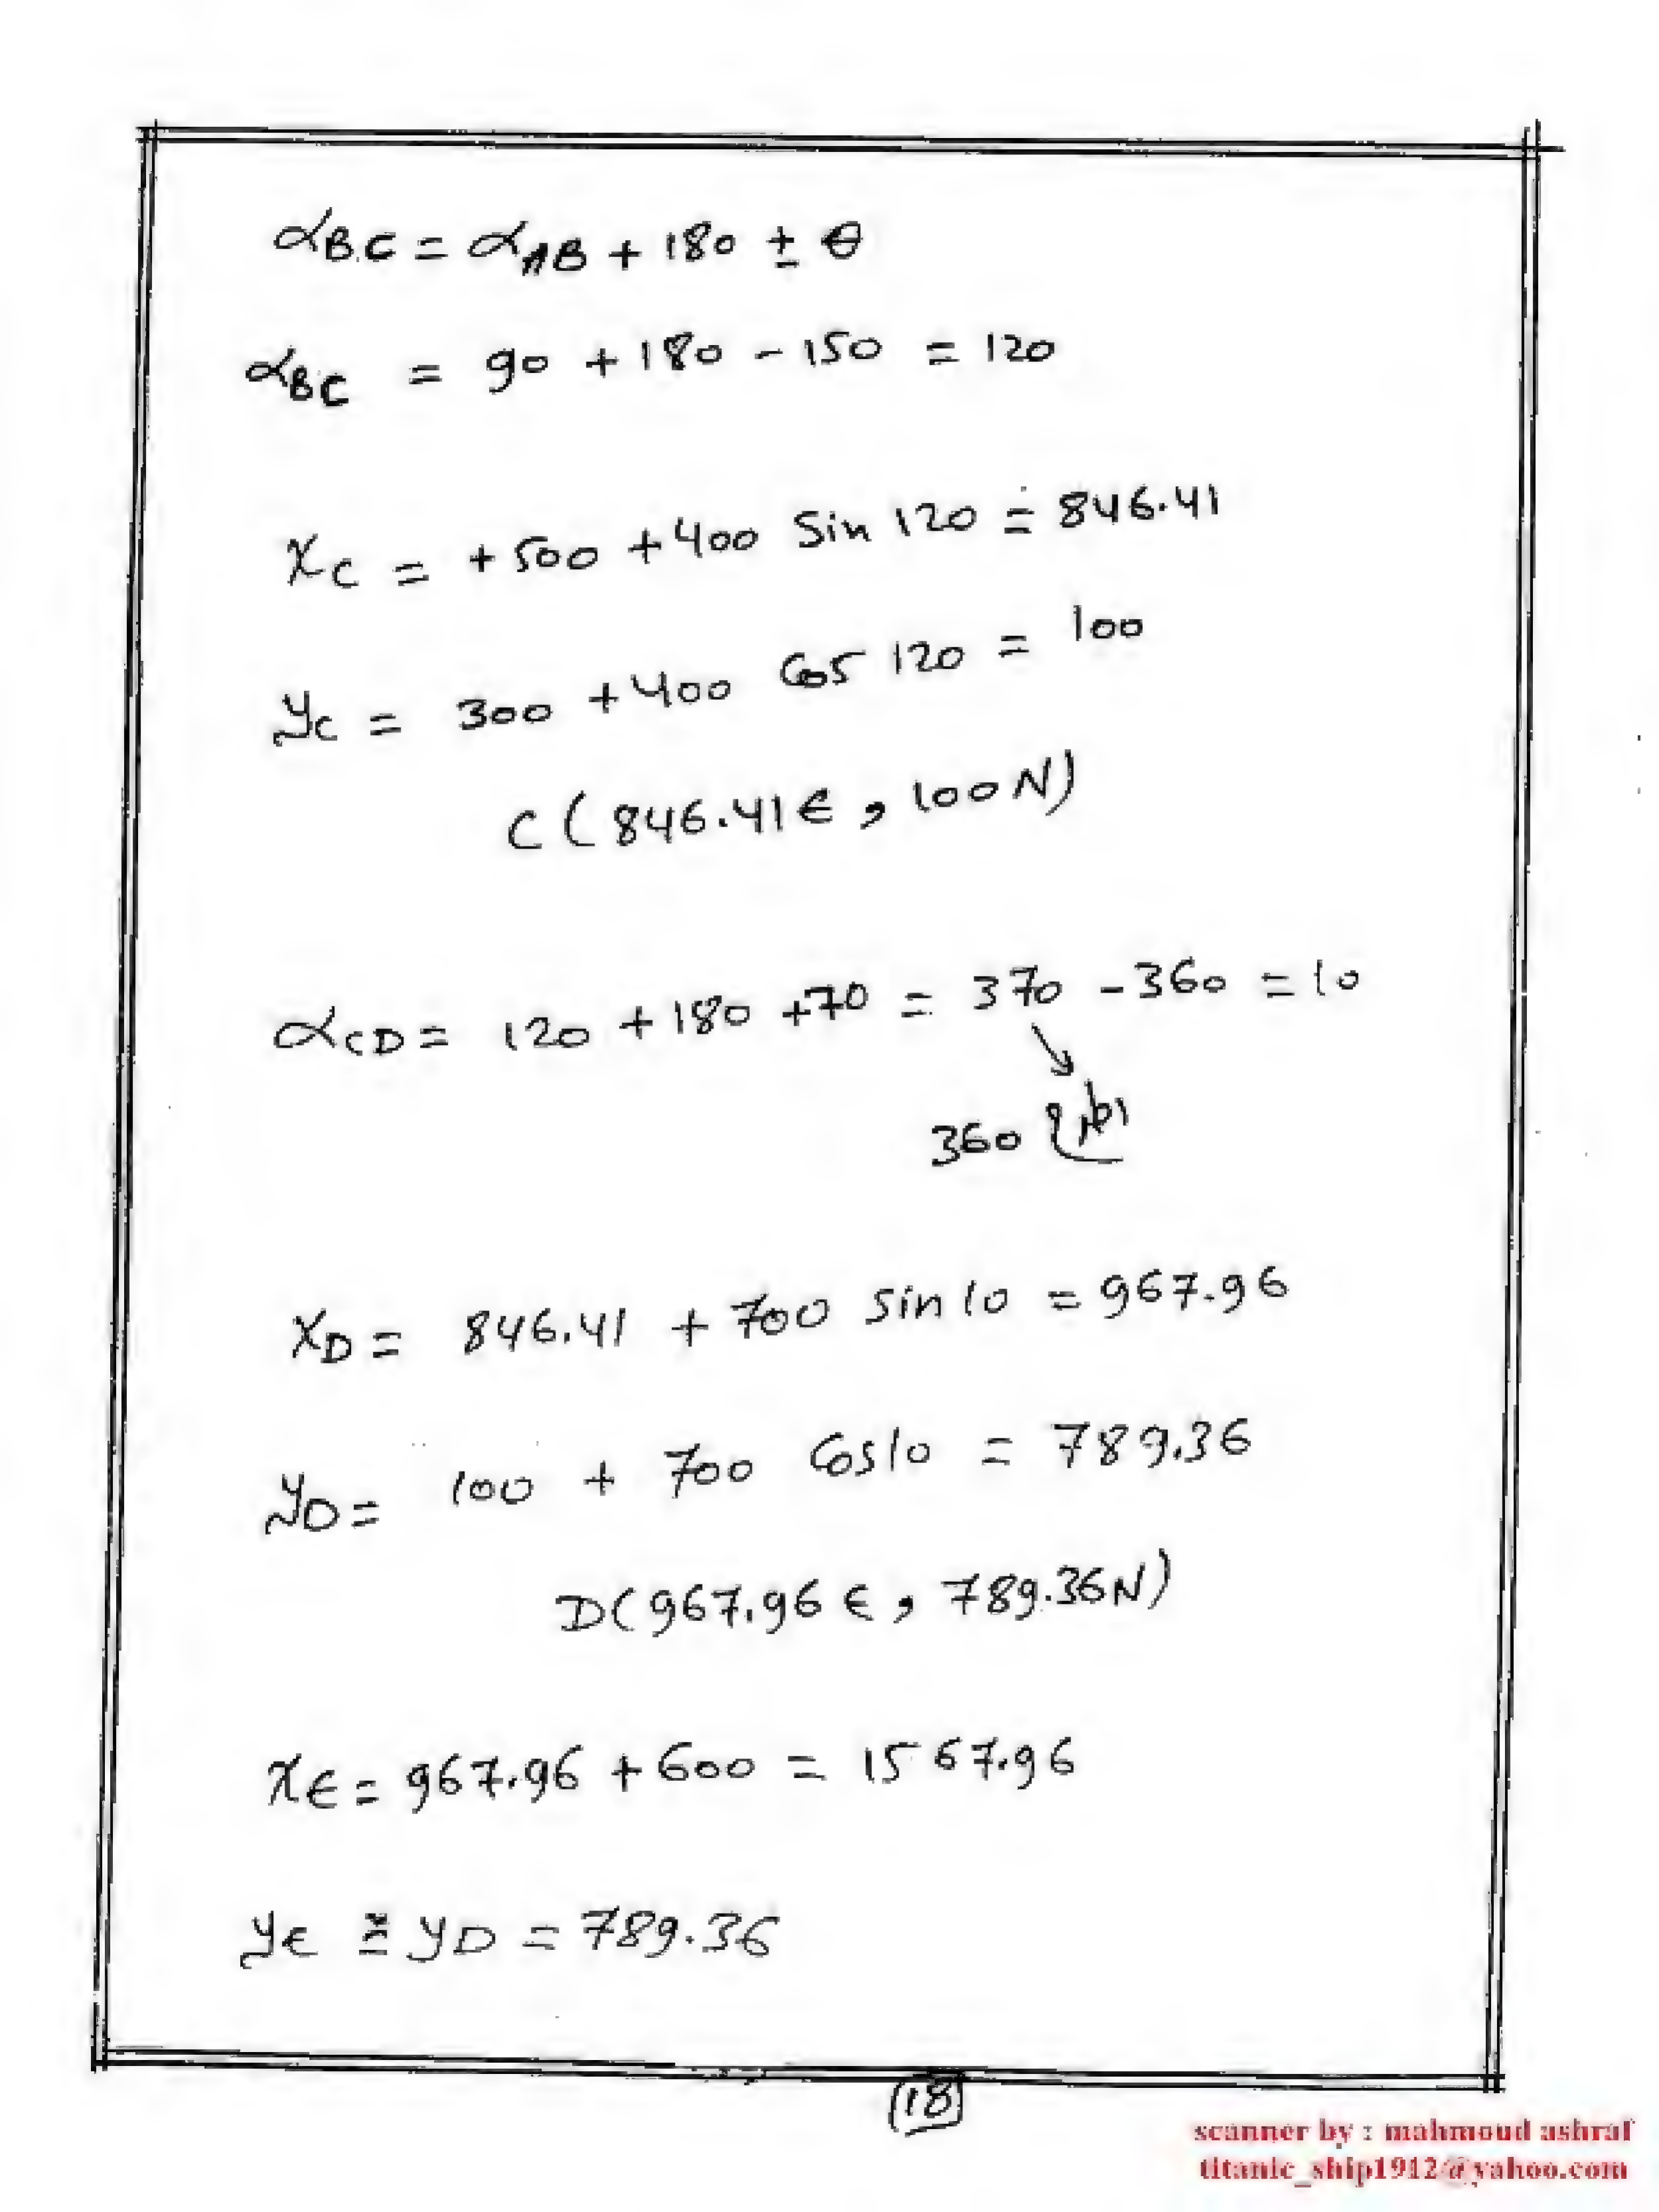 αBC = αAB + 180 ± θ
αBC = 90 + 180 - 150 = 120
xC = +500 + 400 Sin 120 = 846.41
yC = 300 + 400 Cos 120 = 100
C (846.41 E , 100 N)
αCD = 120 + 180 + 70 = 370 - 360 = 10
360
xD = 846.41 + 700 sin 10 = 967.96
yD = 100 + 700 Cos 10 = 789.36
D (967.96 E , 789.36 N)
xE = 967.96 + 600 = 1567.96
yE = yD = 789.36
(18)
scanner by : mahmoud ashraf
titanic_ship1912@yahoo.com